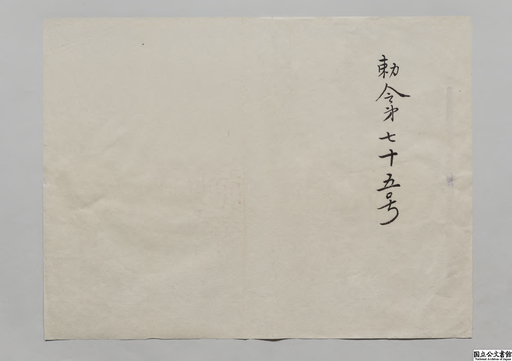 勅令第七十五号
国立公文書館
National Archives of Japan